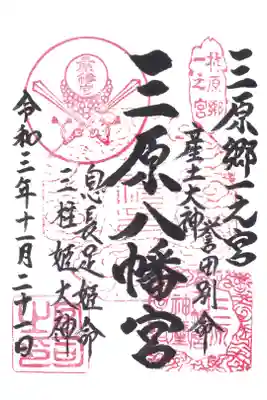 三原郷一之宮
産土大神
誉田別命
三原八幡宮
息長足姫命
三柱姫大神
令和三年十一月二十一日
八幡宮